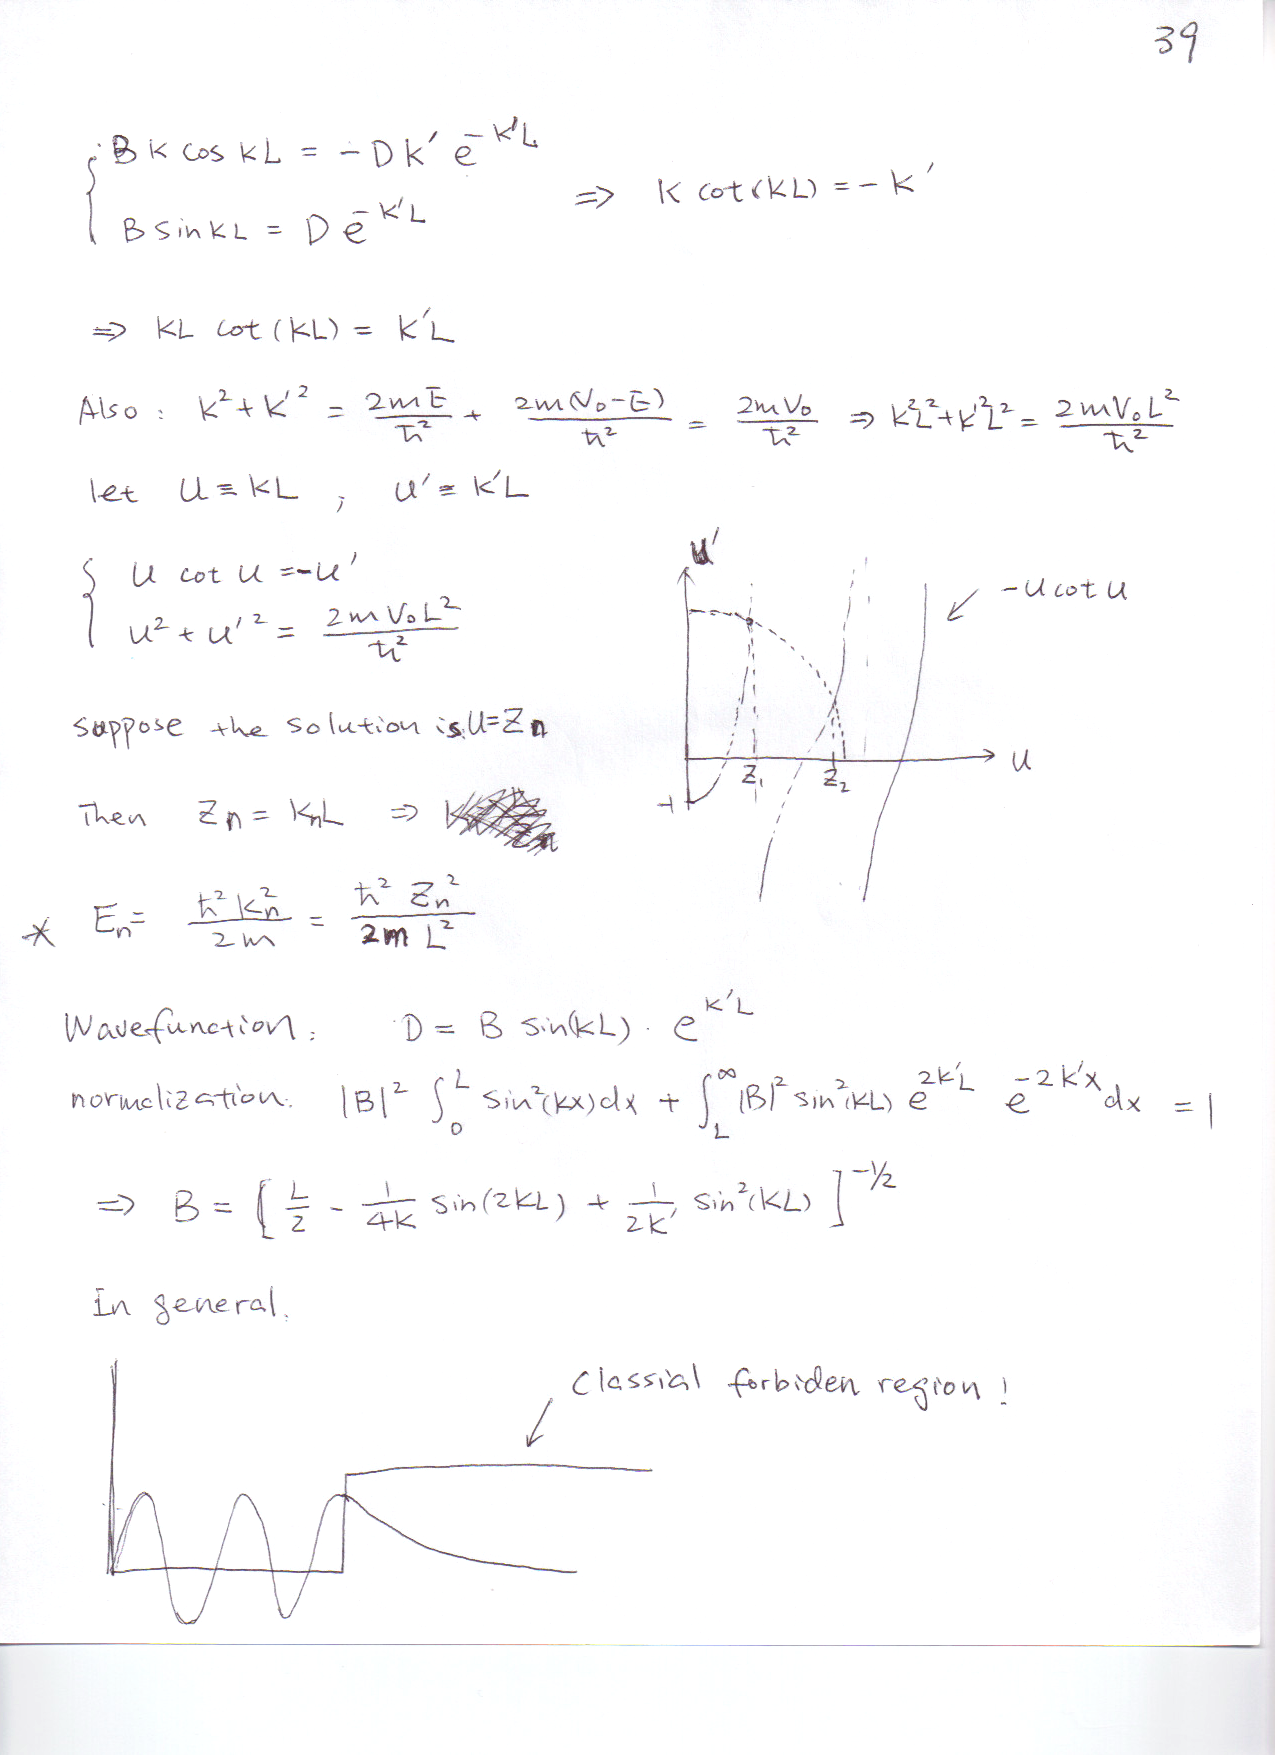 39
B k cos kL = - D k' e^{-k'L}
B sin kL = D e^{-k'L}
⇒ k cot(kL) = - k'
⇒ kL cot(kL) = k'L
Also: k² + k'² = 2mE/ħ² + 2m(V₀-E)/ħ² = 2mV₀/ħ² ⇒ k²L² + k'²L² = 2mV₀L²/ħ²
let u ≡ kL ; u' ≡ k'L
u cot u = -u'
u² + u'² = 2mV₀L²/ħ²
u'
-u cot u
u
z₁
z₂
-1
suppose the solution is u = Zn
Then Zn = knL ⇒
* En = ħ²kn²/2m = ħ² Zn²/2mL²
Wavefunction: D = B sin(kL) · e^{k'L}
normalization: |B|² ∫₀^L sin²(kx)dx + ∫_L^∞ |B|² sin²(kL) e^{2k'L} e^{-2k'x} dx = 1
⇒ B = [ L/2 - 1/4k sin(2kL) + 1/2k' sin²(kL) ]^{-1/2}
In general.
Classial forbiden region!